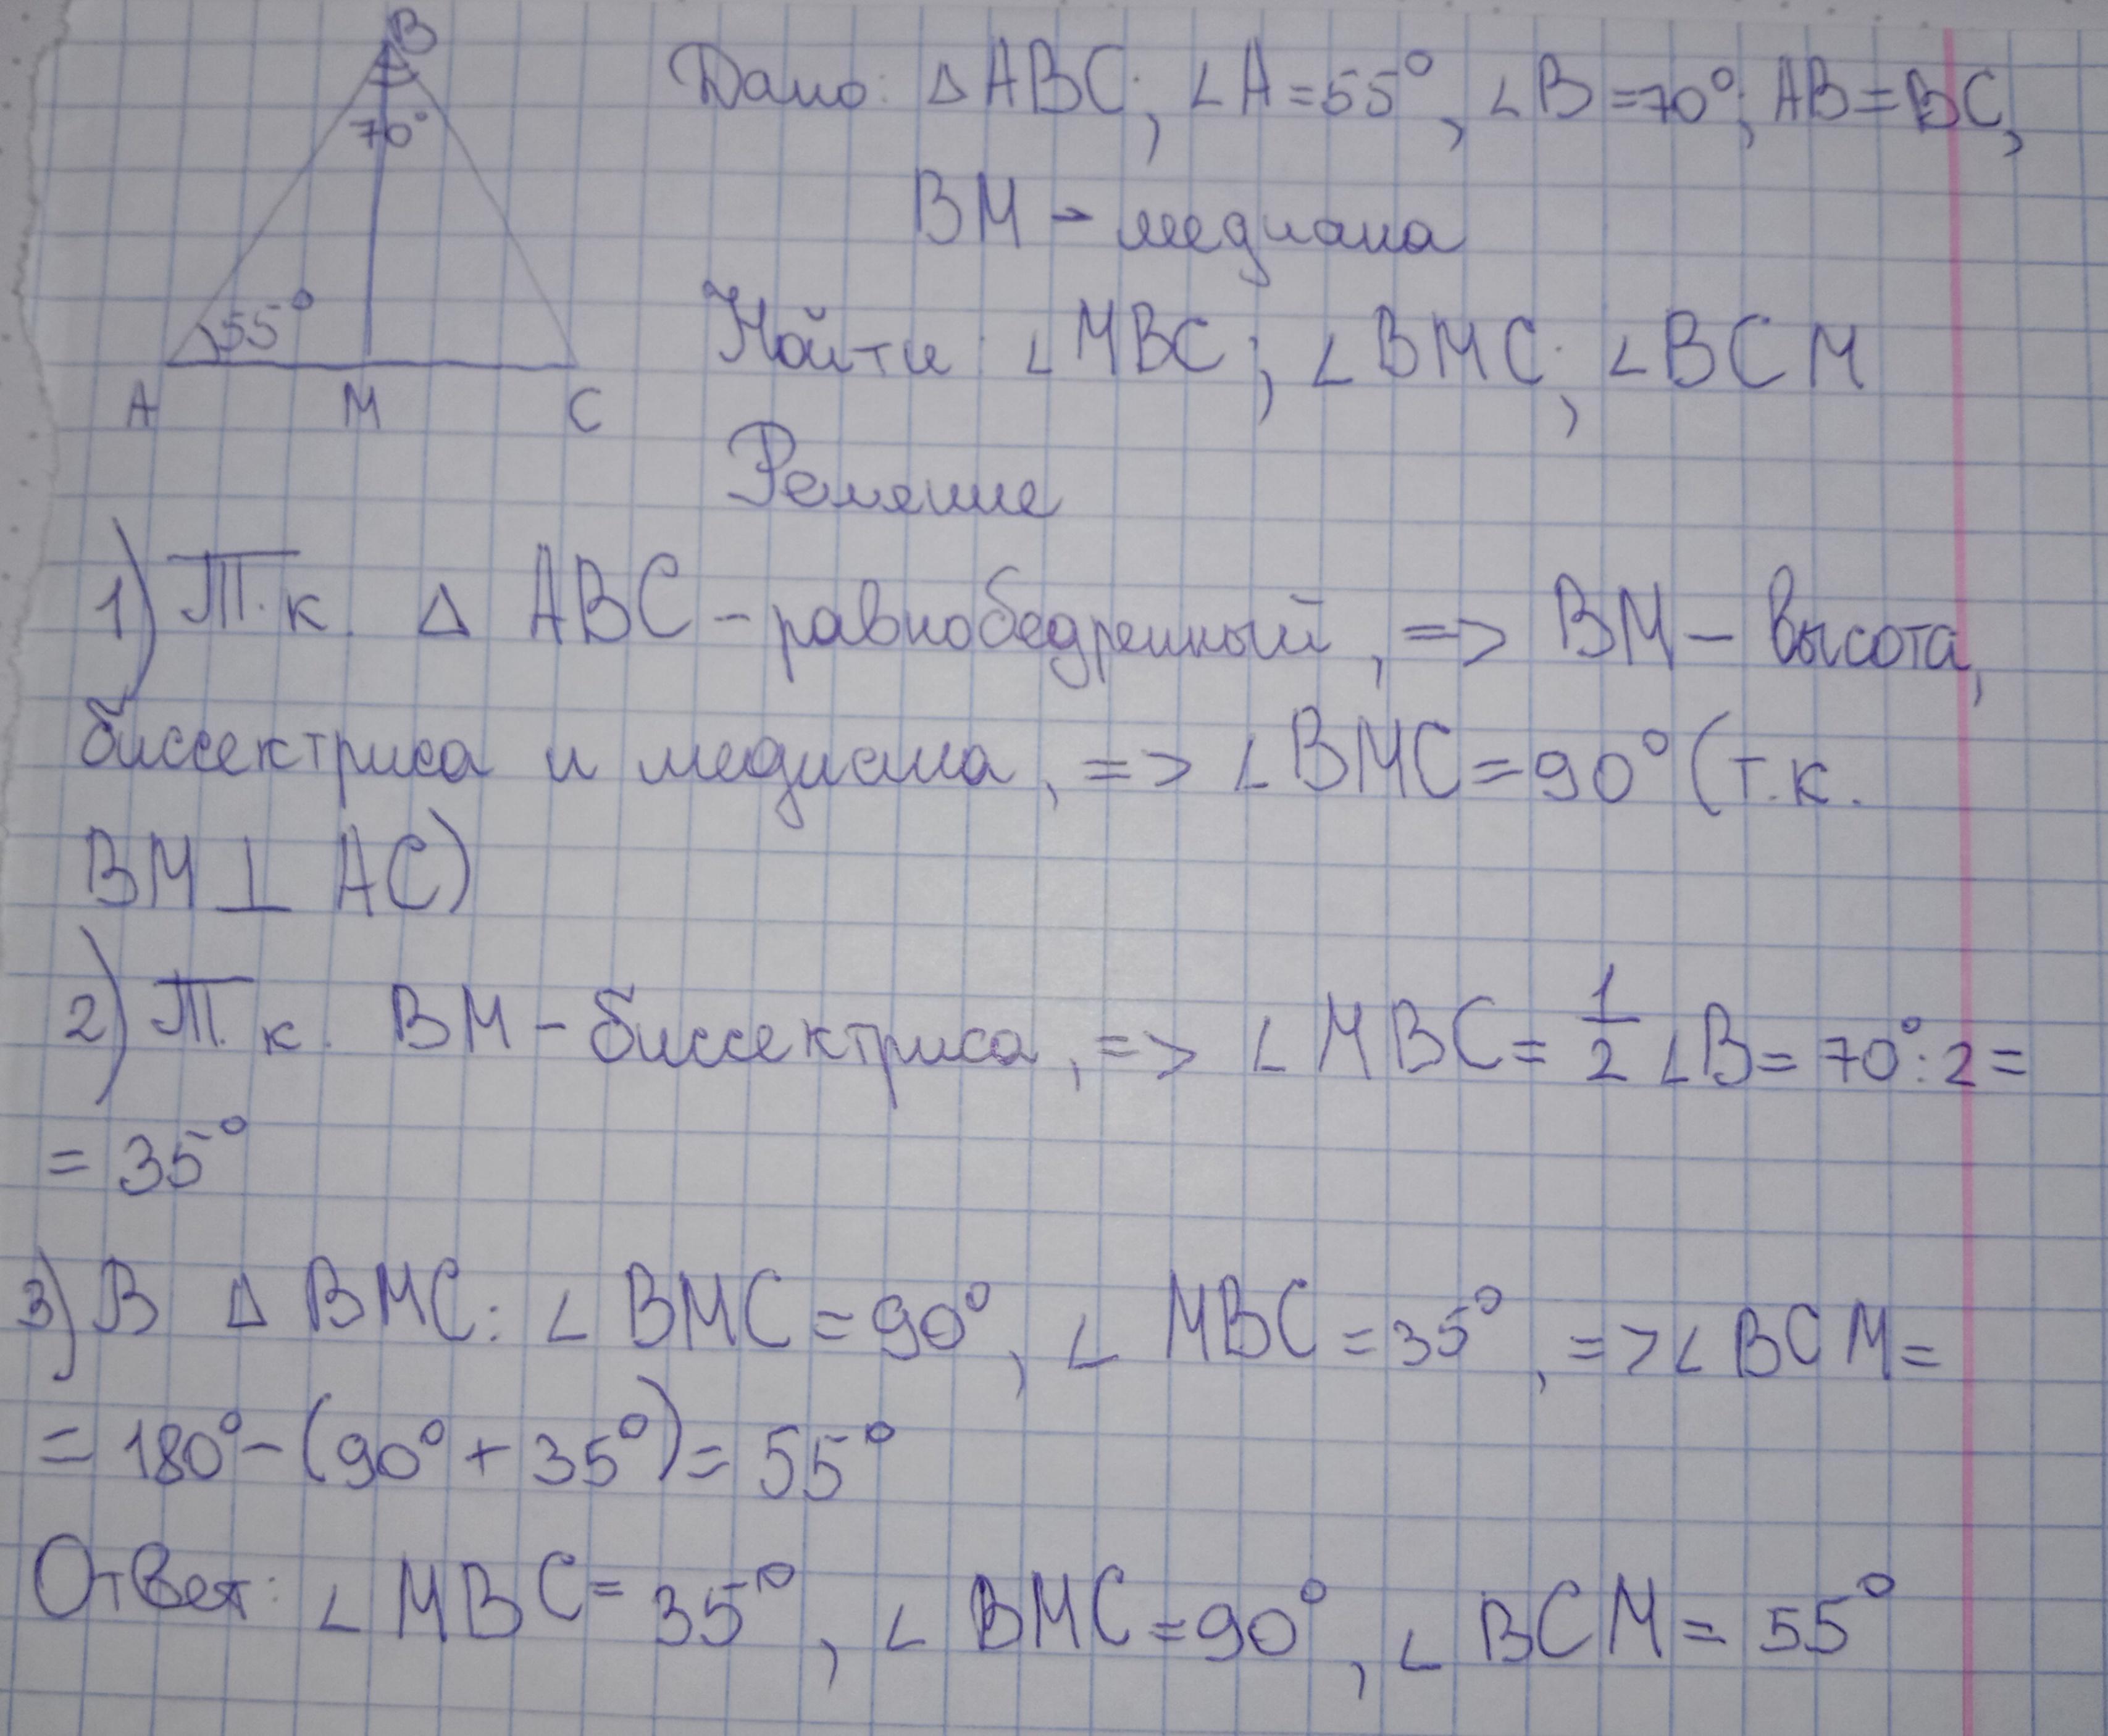 B
70°
55°
A M C
Дано: △ABC; ∠A=55°, ∠B=70°; AB=BC,
BM - медиана
Найти: ∠MBC; ∠BMC; ∠BCM
Решение
1) Т.к. △ ABC - равнобедренный, => BM - высота,
биссектриса и медиана, => ∠BMC=90° (т.к.
BM ⊥ AC)
2) Т.к. BM - биссектриса, => ∠MBC = 1/2 ∠B = 70°:2 =
= 35°
3) В △ BMC: ∠BMC = 90°, ∠MBC = 35°, => ∠BCM =
= 180° - (90° + 35°) = 55°
Ответ: ∠MBC = 35°, ∠BMC = 90°, ∠BCM = 55°